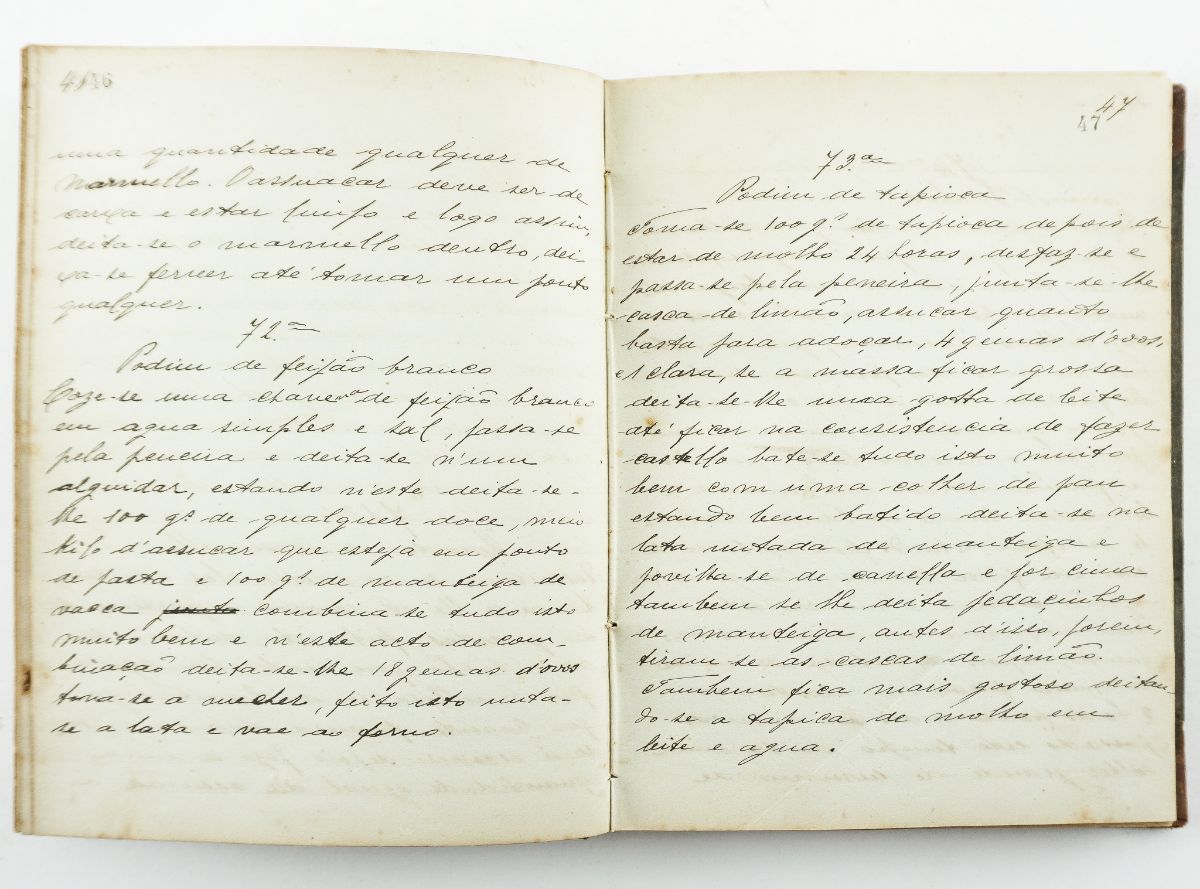 46
uma quantidade qualquer de
marmello. O assucar deve ser de
e estar limpo e logo assim,
deita-se o marmello dentro, dei-
xa-se ferver até tomar um ponto
qualquer.
72.a
Podim de feijão branco
Coze-se uma chaven.ra de feijão branco
em agua simples e sal, passa-se
pela peneira e deita-se n'um
alguidar, estando n'este deita-se-
lhe 100 g.s de qualquer doce, meio
kilo d'assucar que esteja em ponto
de pasta e 100 g.s de manteiga de
vacca junta combina-se tudo isto
muito bem e n'este acto de com-
binação deita-se-lhe 18 gemas d'ovos
torna-se a mecher, feito isto unta-
se a lata e vae ao forno.
47
47
73.a
Podim de tapioca
Toma-se 100 g.s de tapioca depois de
estar de molho 24 horas, desfaz-se e
passa-se pela peneira, junta-se-lhe
casca de limão, assucar quanto
basta para adoçar, 4 gemas d'ovos,
e 1 clara, se a massa ficar grossa
deita-se-lhe uma gotta de leite
até ficar na consistencia de fazer
castello bate-se tudo isto muito
bem com uma colher de pau
estando bem batido deita-se na
lata untada de manteiga e
povilha-se de canella e por cima
tambem se lhe deita pedacinhos
de manteiga, antes d'isso, porem,
tiram-se as cascas de limão.
Tambem fica mais gostoso deitan-
do-se a tapica de molho em
leite e agua.